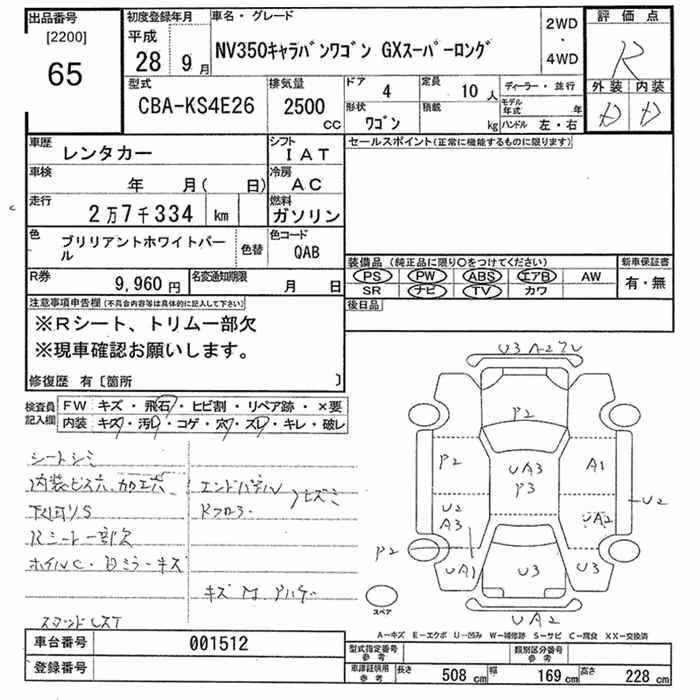 出品番号
[2200]
65
初度登録年月
平成
28 9月
車名・グレード
NV350キャラバンワゴン GXスーパーロング
2WD
・
4WD
評価点
R
外装 内装
D D
型式
CBA-KS4E26
排気量
2500
CC
ドア
4
定員
10 人
形状
ワゴン
積載
kg
ディーラー・並行
モデル年式 年
ハンドル 左・右
車歴
レンタカー
シフト
IAT
車検
年 月( 日)
冷房
AC
走行
2万7千334 km
燃料
ガソリン
色
ブリリアントホワイトパール
色替
色コード
QAB
R券
9,960 円
名変通知期限
月 日
セールスポイント(正常に機能するものに限ります)
装備品 (純正品に限り○をつけてください)
新車保証書
PS PW ABS エアB AW
SR ナビ TV カワ
有・無
後日品
注意事項申告欄(不具合内容等は具体的に記入して下さい)
※Rシート、トリム一部欠
※現車確認お願いします。
修復歴 有〔箇所 〕
検査員記入欄
FW キズ・飛石・ヒビ割・リペア跡・×要
内装 キズ・汚レ・コゲ・穴・ズレ・キレ・破レ
シートシミ
内装ビス穴、加工穴
下廻りS
Rシート一部欠
ホイルC・ミラーキズ
エンドパネル
Rフロア
ヒズミ
キズ
U3 A2
P2
P2
UA3
P3
A1
U2
A3
UA2
U2
P2
UA1
U3
U3
UA2
スペア
A−キズ E−エクボ U−凹み W−補修跡 S−サビ C−腐食 XX−交換済
車台番号
001512
登録番号
型式指定番号
参考
類別区分番号
参考
車庫証明用
参考
長さ 508 cm 幅 169 cm 高さ 228 cm